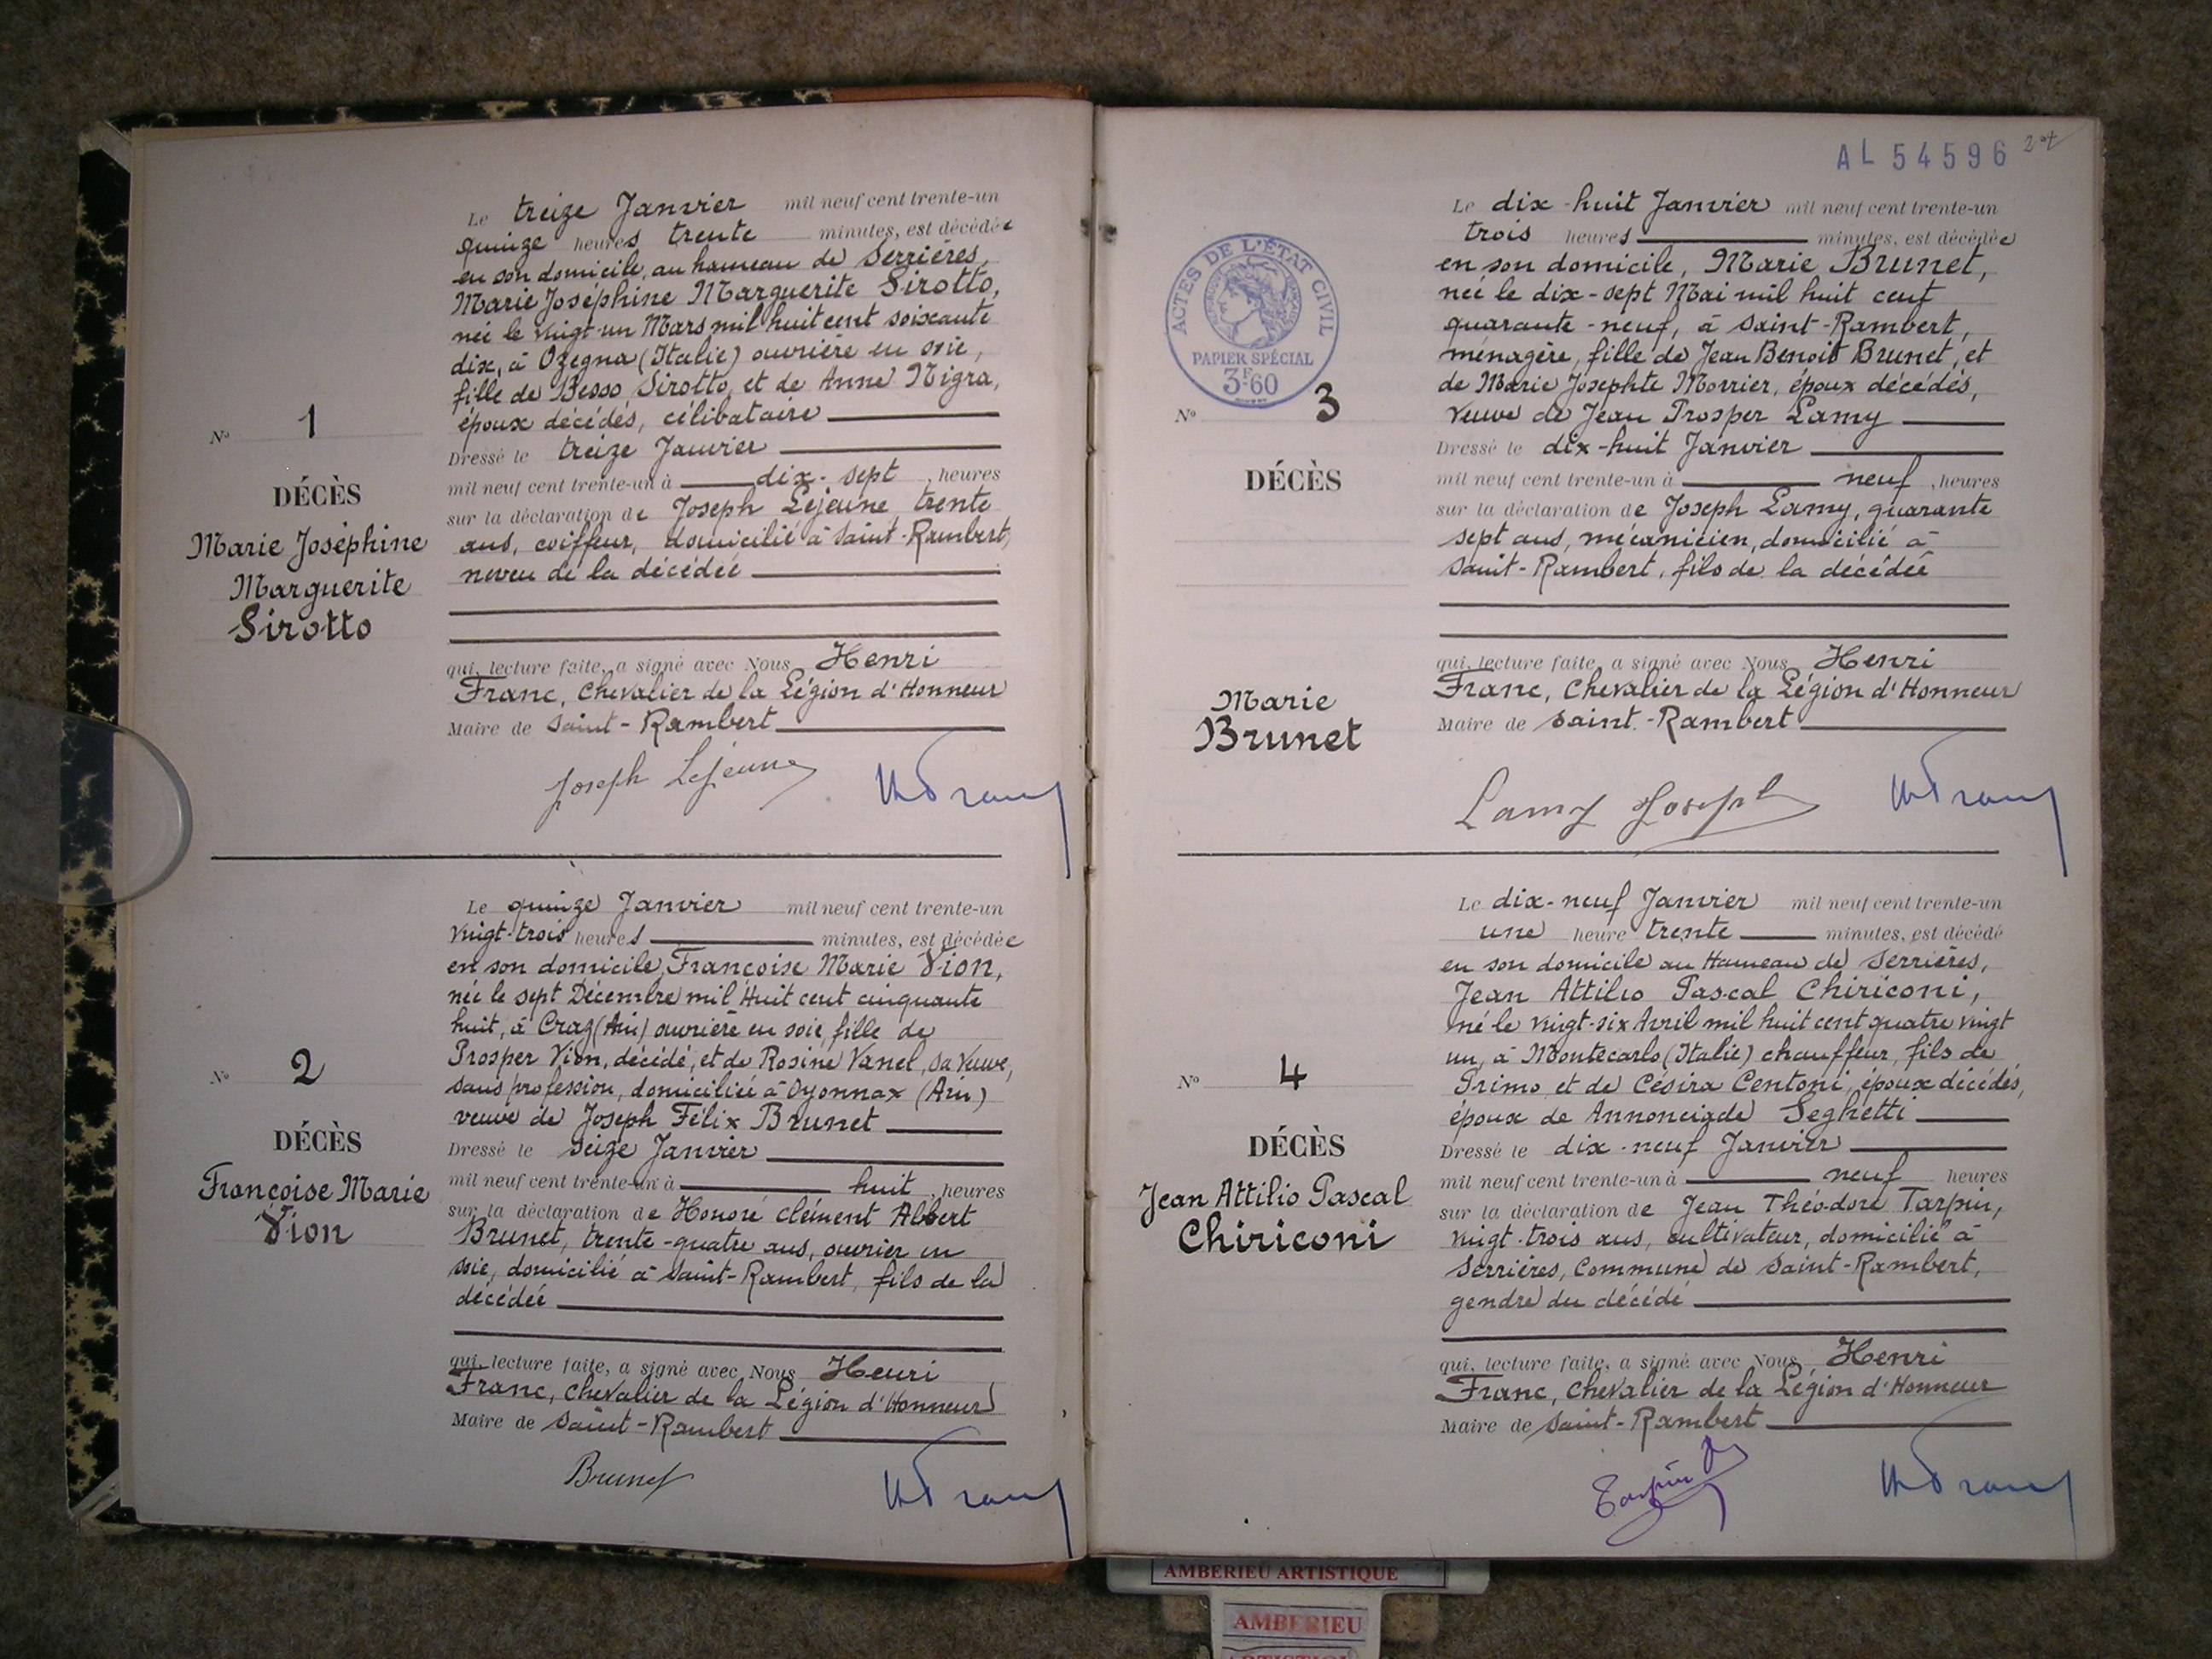 Le treize Janvier mil neuf cent trente-un
quinze heures trente minutes, est décédée
en son domicile, au hameau de Serrières,
Marie Joséphine Marguerite Sirotto,
née le vingt-un Mars mil huit cent soixante
dix, à Ozegna (Italie) ouvrière en soie,
fille de Besso Sirotto, et de Anne Nigra,
époux décédés, célibataire
Dressé le treize Janvier
mil neuf cent trente-un à dix-sept heures
sur la déclaration de Joseph Lejeune, trente
ans, coiffeur, domicilié à Saint-Rambert,
neveu de la décédée
qui, lecture faite, a signé avec Nous Henri
Franc, Chevalier de la Légion d'Honneur
Maire de Saint-Rambert
Joseph Lejeune
No 1
DÉCÈS
Marie Joséphine
Marguerite
Sirotto
Le quinze Janvier mil neuf cent trente-un
vingt-trois heures minutes, est décédée
en son domicile, Françoise Marie Vion,
née le sept Décembre mil Huit cent cinquante
huit, à Craz (Ain) ouvrière en soie, fille de
Prosper Vion, décédé, et de Rosine Vanel, sa Veuve,
sans profession, domiciliée à Oyonnax (Ain)
veuve de Joseph Félix Brunet
Dressé le seize Janvier
mil neuf cent trente-un à huit, heures
sur la déclaration de Honoré Clément Albert
Brunet, trente-quatre ans, ouvrier en
soie, domicilié à Saint-Rambert, fils de la
décédée
qui, lecture faite, a signé avec Nous Henri
Franc, Chevalier de la Légion d'Honneur
Maire de Saint-Rambert
Brunet
No 2
DÉCÈS
Françoise Marie
Vion
AL 54596
ACTES DE L'ÉTAT CIVIL
PAPIER SPÉCIAL
3F60
Le dix-huit Janvier mil neuf cent trente-un
trois heures minutes, est décédée
en son domicile, Marie Brunet,
née le dix-sept Mai mil huit cent
quarante-neuf, à Saint-Rambert,
ménagère, fille de Jean Benoit Brunet, et
de Marie Josephte Morrier, époux décédés,
veuve de Jean Prosper Lamy
Dressé le dix-huit Janvier
mil neuf cent trente-un à neuf, heures
sur la déclaration de Joseph Lamy, quarante
sept ans, mécanicien, domicilié à
Saint-Rambert, fils de la décédée
qui, lecture faite, a signé avec Nous Henri
Franc, Chevalier de la Légion d'Honneur
Maire de Saint-Rambert
Lamy Joseph
No 3
DÉCÈS
Marie
Brunet
Le dix-neuf Janvier mil neuf cent trente-un
une heure trente minutes, est décédé
en son domicile au Hameau de Serrières,
Jean Attilio Pascal Chiriconi,
né le vingt-six Avril mil huit cent quatre vingt
un, à Montecarlo (Italie) chauffeur, fils de
Primo et de Césira Centoni, époux décédés,
époux de Annonciade Seghetti
Dressé le dix-neuf Janvier
mil neuf cent trente-un à neuf heures
sur la déclaration de Jean Théodore Tarpin,
vingt-trois ans, cultivateur, domicilié à
Serrières, Commune de Saint-Rambert,
gendre du décédé
qui, lecture faite, a signé avec Nous Henri
Franc, Chevalier de la Légion d'Honneur
Maire de Saint-Rambert
No 4
DÉCÈS
Jean Attilio Pascal
Chiriconi
AMBERIEU ARTISTIQUE
AMBERIEU